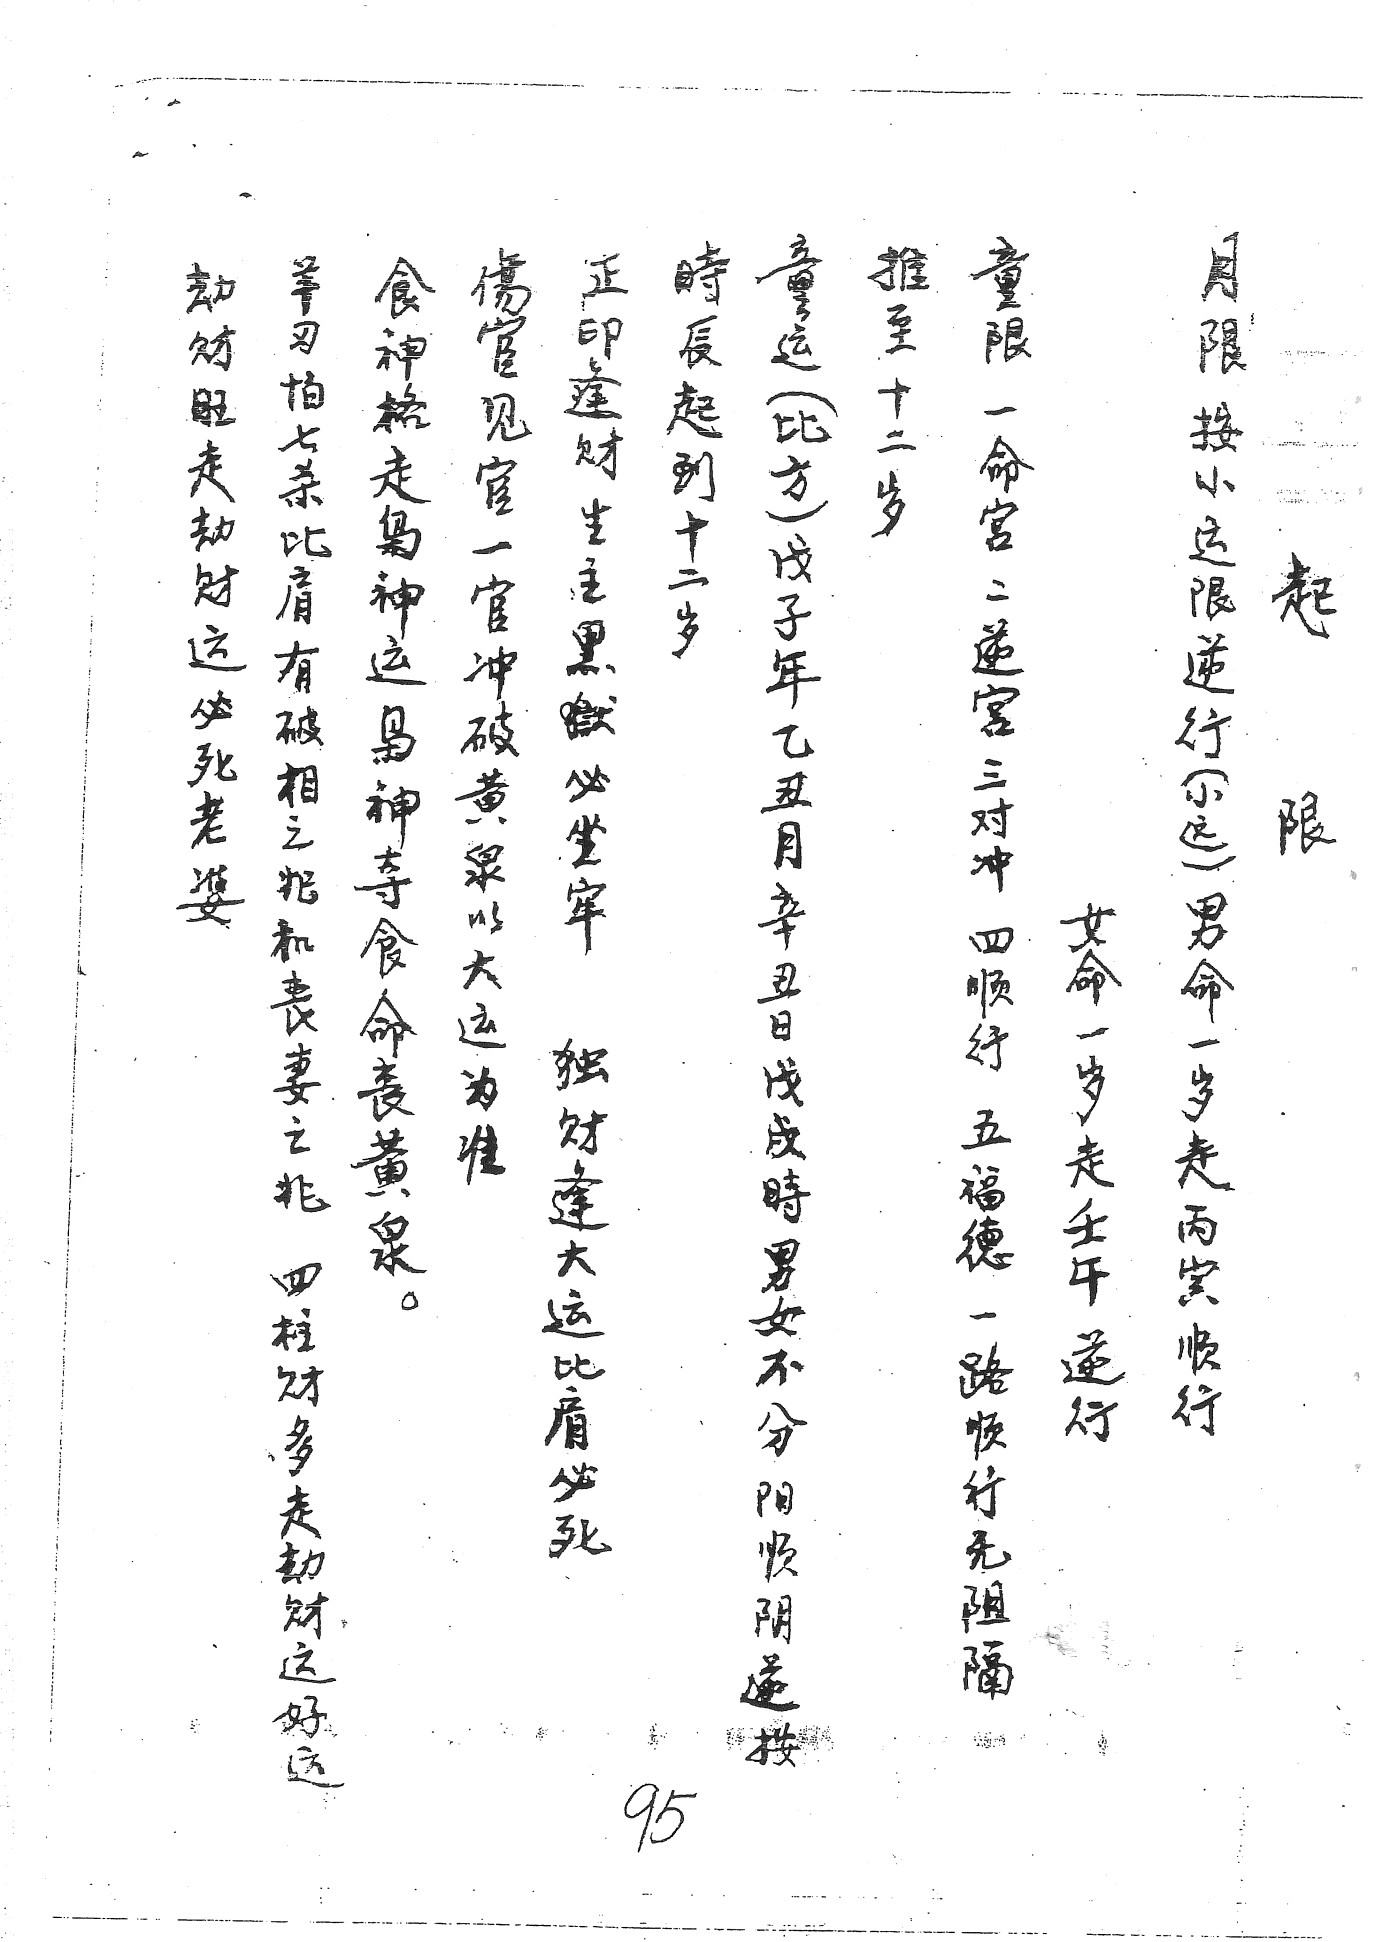 起限
月限按小运限逆行(小运)男命一岁走丙寅顺行
女命一岁走壬午逆行
童限一命宫二逆宫三对冲 四顺行 五福德一路顺行无阻隔
推至十二岁
童运(比方)戊子年乙丑月辛丑日戊戌時男女不分阳顺阴逆按
時辰起到十二岁
正印逢财生主黑獄必坐牢 独财逢大运比肩必死
傷官见官一官冲破黄泉以大运为准
食神格走枭神运枭神夺食命丧黄泉。
羊刃怕七杀比肩有破相之兆和丧妻之兆 四柱财多走劫财运好运
劫财旺走劫财运必死老婆
95